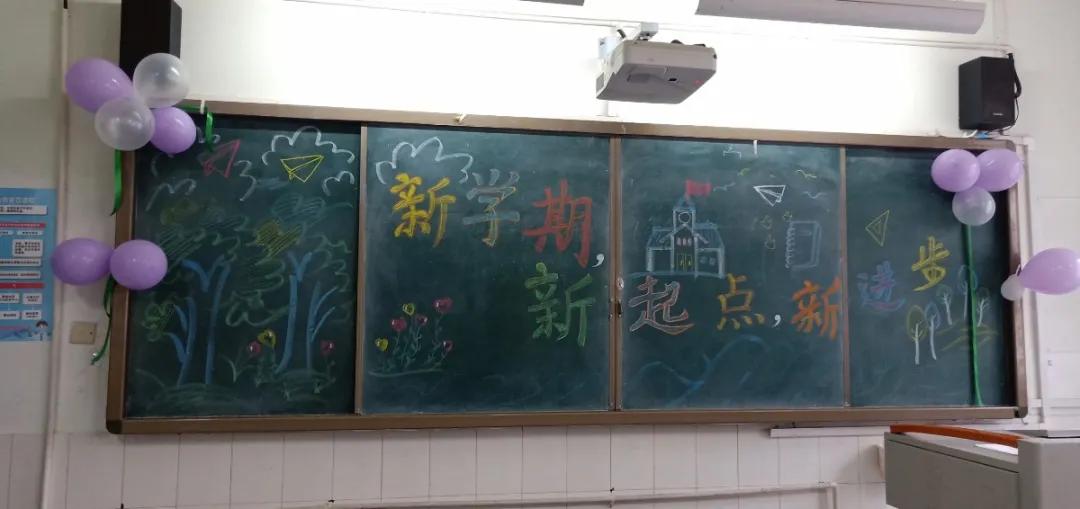 新学期，
新起点，新进步